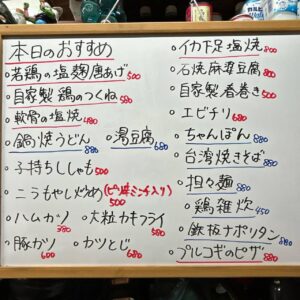 本日のおすすめ
若鶏の塩麹唐あげ 500
自家製鶏のつくね 580
軟骨の塩焼 480
鍋焼うどん 880 湯豆腐 680
子持ちししゃも 500
ニラもやし炒め(ピリ辛ミンチ入り) 500
ハムカツ 380 大粒カキフライ 580
豚カツ 600 カツとじ 680
イカ下足塩焼 800
石焼麻婆豆腐 800
自家製春巻き 500
エビチリ 680
ちゃんぽん 880
台湾焼きそば 880
担々麺 880
鶏雑炊 450
鉄板ナポリタン 880
プルコギのピザ 880